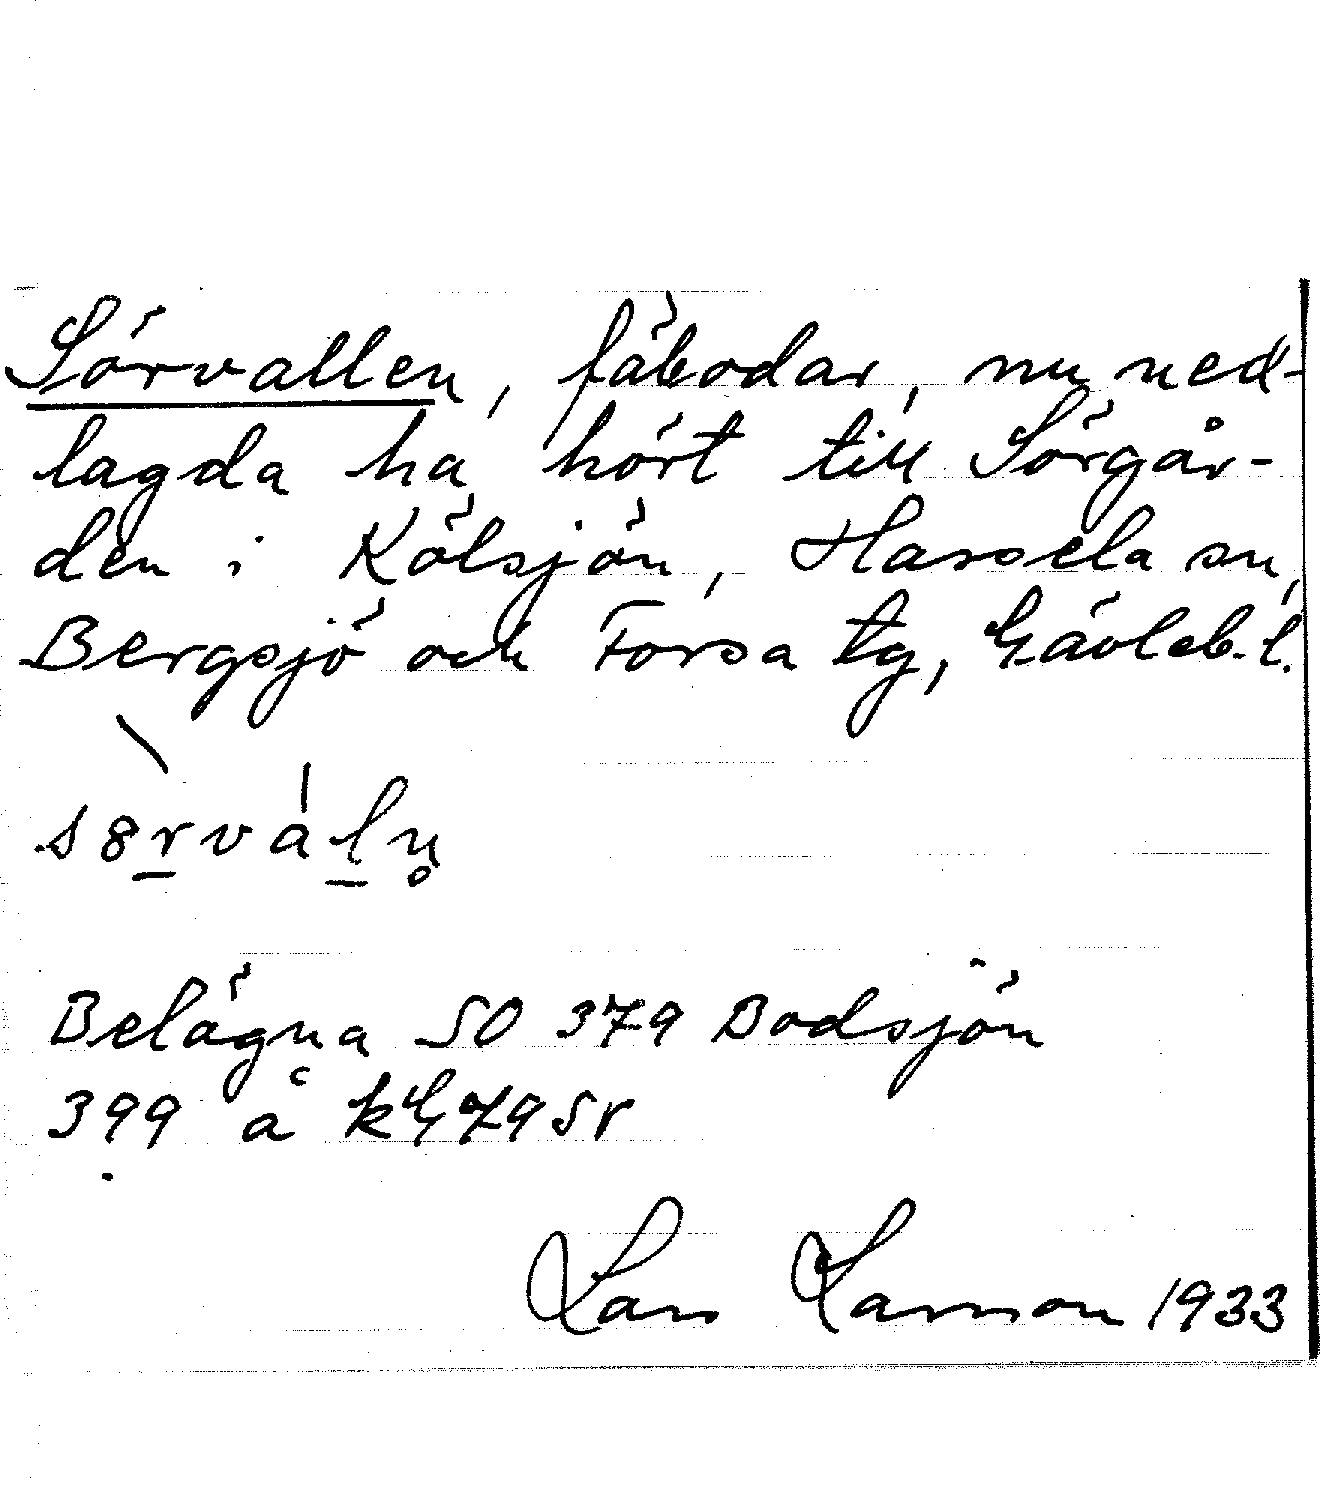 Sörvallen, fäbodar, nu ned-
lagda ha hört till Sörgår-
den i Kölsjön, Hassela sn,
Bergsjö och Forsa tg, Gävleb. l.
Belägna SO 379 Bodsjön
399 å kG 79 Sr
Lars Larsson 1933